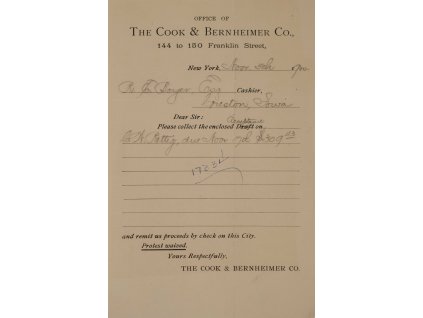 OFFICE OF
THE COOK & BERNHEIMER CO.,
144 to 150 Franklin Street,
New York, Nov
Esq Cashier,
Creston, Iowa
Dear Sir:
Please collect the enclosed Draft on
due Nov
and remit us proceeds by check on this City.
Protest waived.
Yours Respectfully,
THE COOK & BERNHEIMER CO.